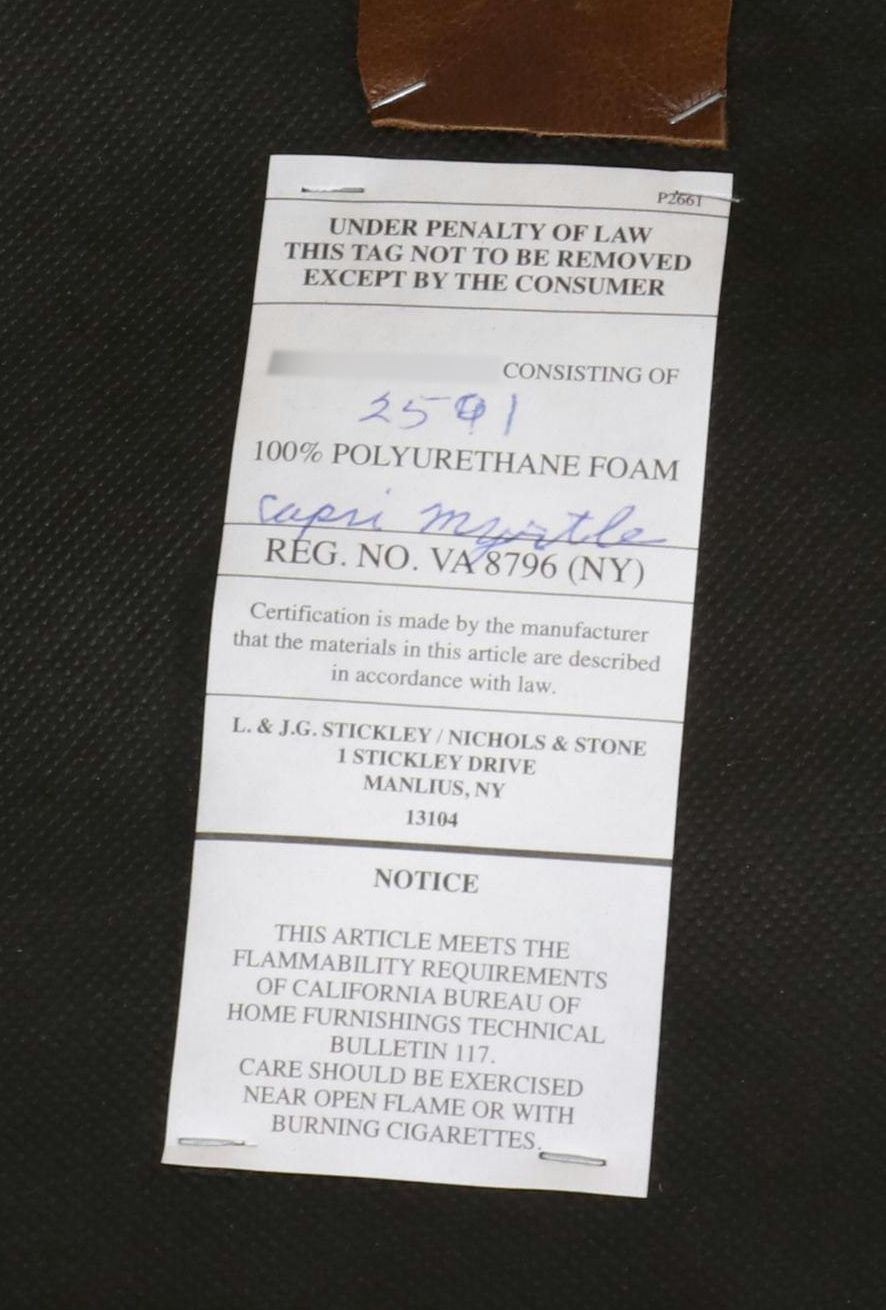 P2661
UNDER PENALTY OF LAW
THIS TAG NOT TO BE REMOVED
EXCEPT BY THE CONSUMER
CONSISTING OF
100% POLYURETHANE FOAM
capri myrtle
REG. NO. VA 8796 (NY)
Certification is made by the manufacturer
that the materials in this article are described
in accordance with law.
L. & J.G. STICKLEY / NICHOLS & STONE
1 STICKLEY DRIVE
MANLIUS, NY
13104
NOTICE
THIS ARTICLE MEETS THE
FLAMMABILITY REQUIREMENTS
OF CALIFORNIA BUREAU OF
HOME FURNISHINGS TECHNICAL
BULLETIN 117.
CARE SHOULD BE EXERCISED
NEAR OPEN FLAME OR WITH
BURNING CIGARETTES.